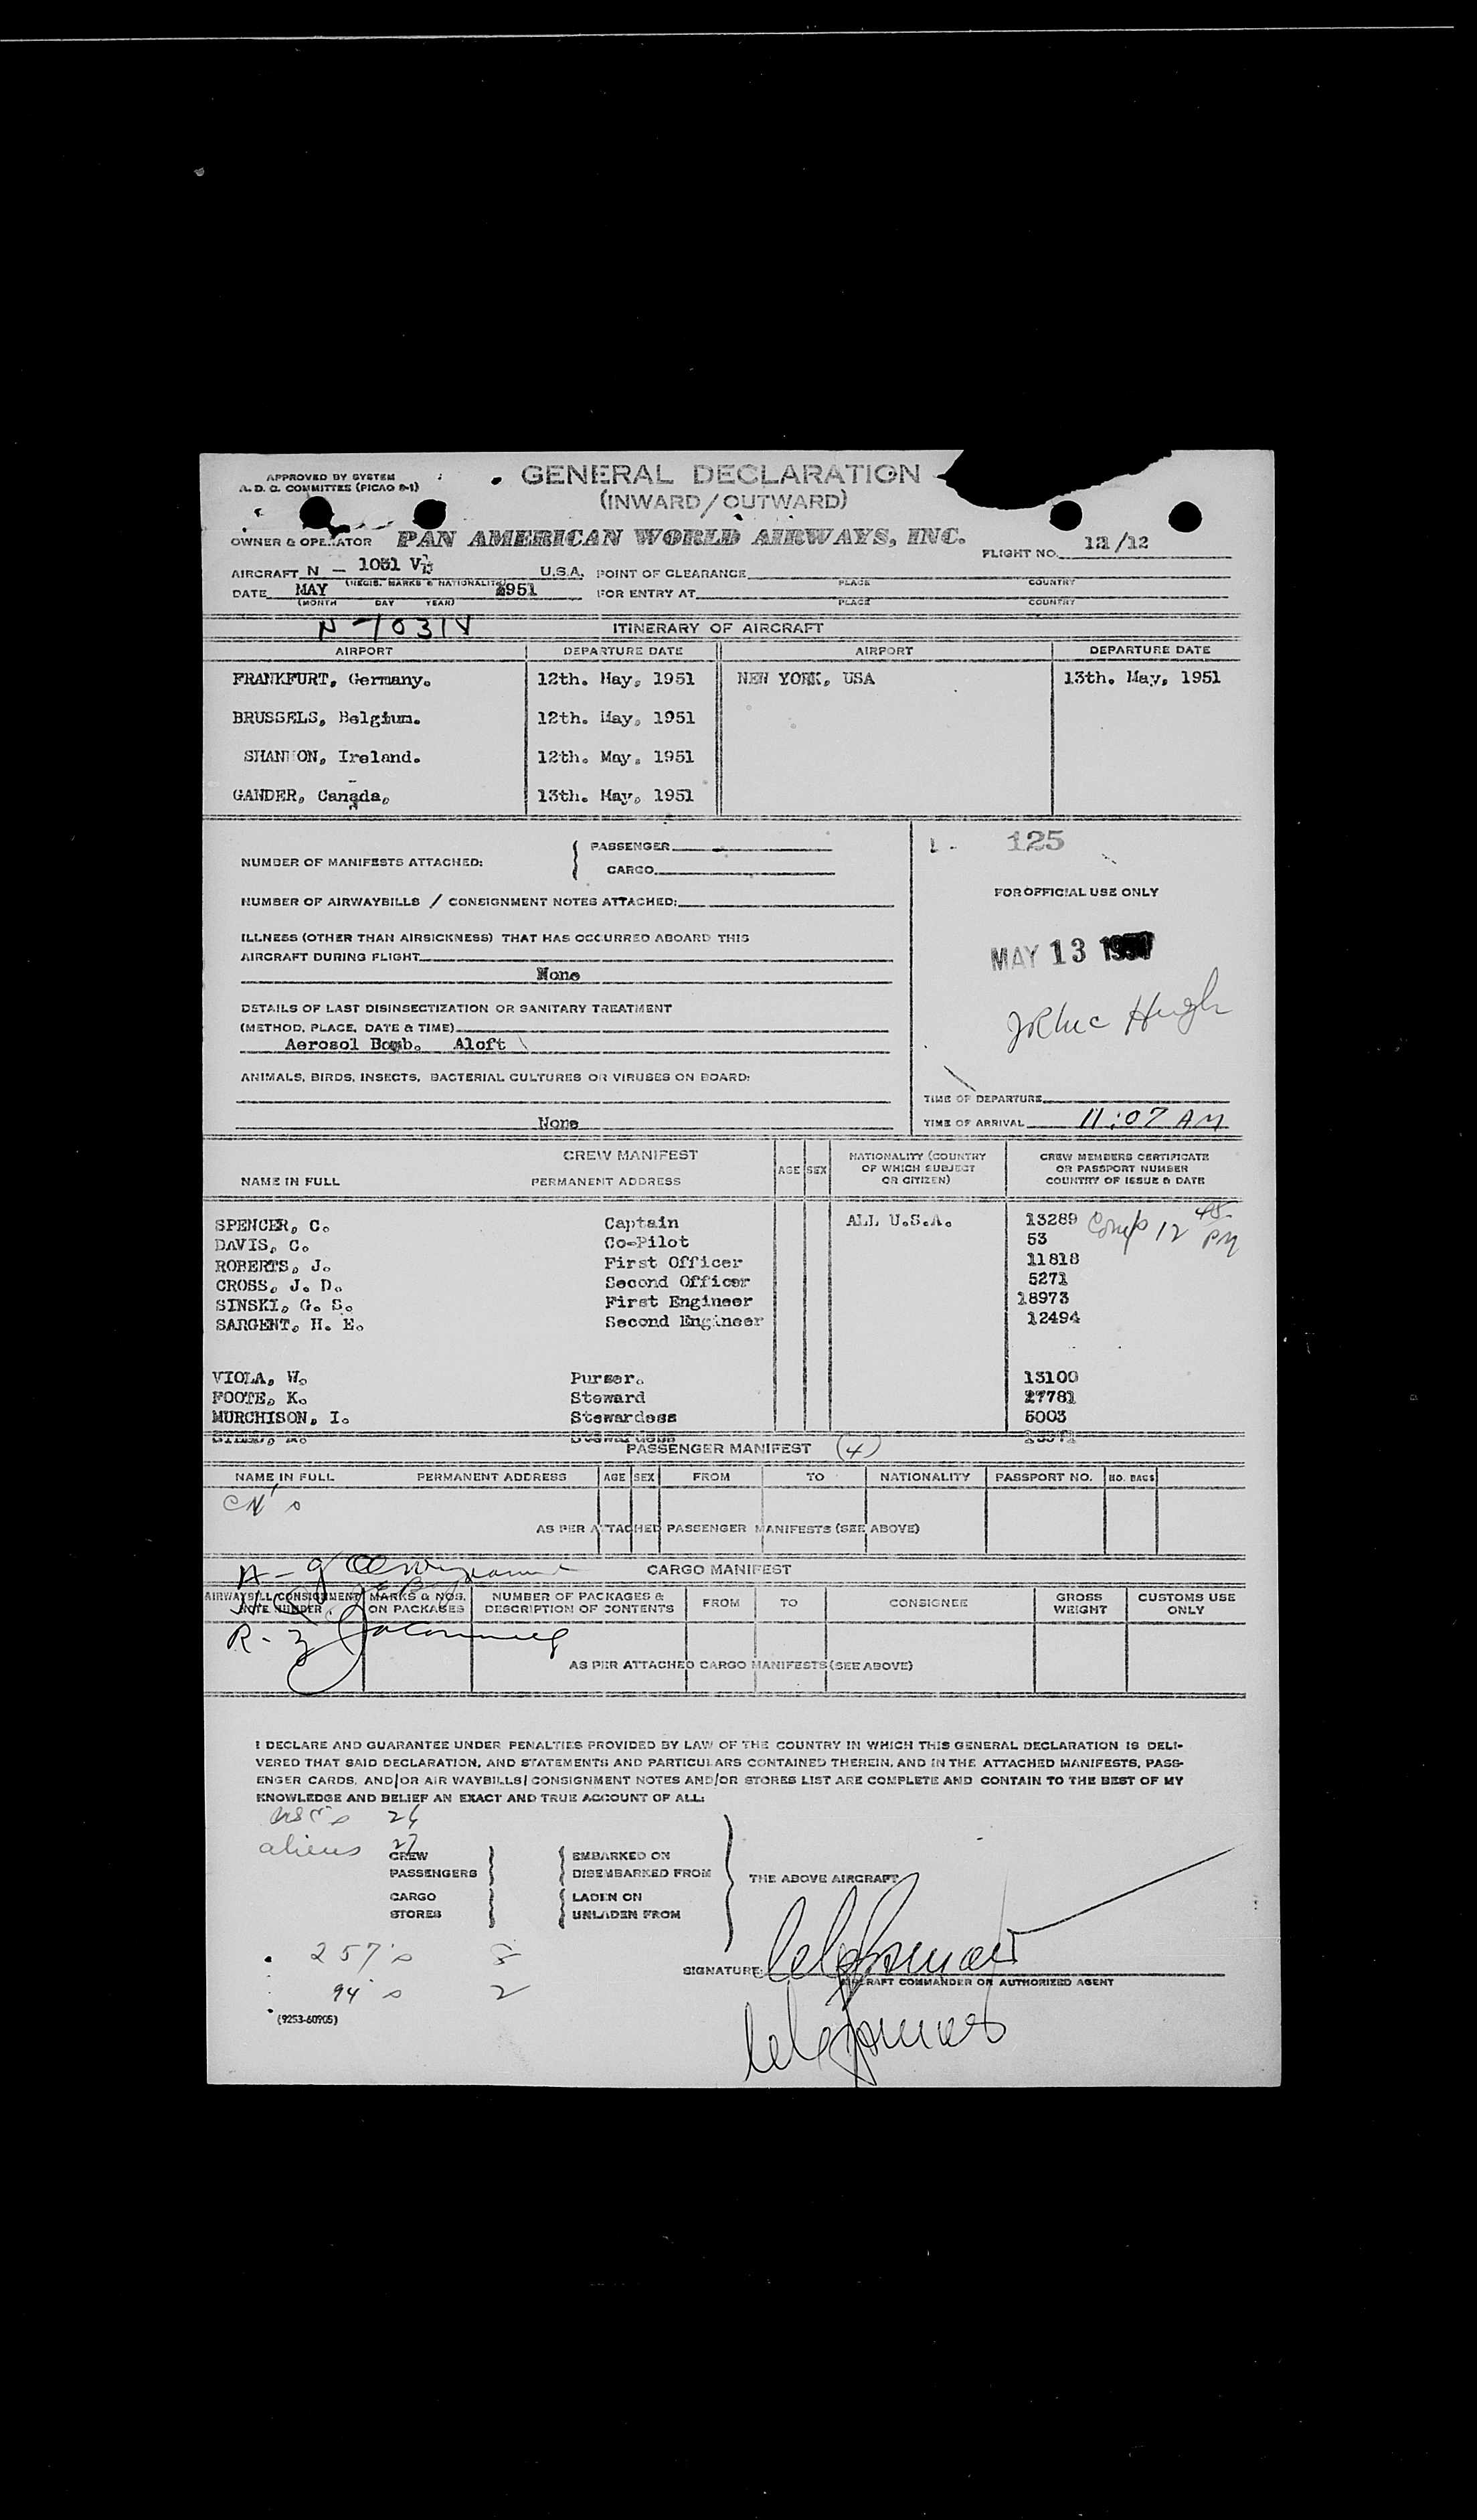 APPROVED BY SYSTEM
A. D. C. COMMITTEE (PICAO 8-1)
GENERAL DECLARATION
(INWARD/OUTWARD)
OWNER & OPERATOR PAN AMERICAN WORLD AIRWAYS, INC.
FLIGHT NO. 12/12
AIRCRAFT N - 1031 V U.S.A. POINT OF CLEARANCE
(REGIS. MARKS & NATIONALITY) PLACE COUNTRY
DATE MAY 1951 FOR ENTRY AT
(MONTH DAY YEAR) PLACE COUNTRY
N-1031V ITINERARY OF AIRCRAFT
AIRPORT DEPARTURE DATE AIRPORT DEPARTURE DATE
FRANKFURT, Germany. 12th. May, 1951 NEW YORK, USA 13th. May, 1951
BRUSSELS, Belgium. 12th. May, 1951
SHANNON, Ireland. 12th. May, 1951
GANDER, Canada, 13th. May, 1951
125
NUMBER OF MANIFESTS ATTACHED: PASSENGER
CARGO
FOR OFFICIAL USE ONLY
NUMBER OF AIRWAYBILLS / CONSIGNMENT NOTES ATTACHED:
ILLNESS (OTHER THAN AIRSICKNESS) THAT HAS OCCURRED ABOARD THIS
AIRCRAFT DURING FLIGHT
None
MAY 13 1951
DETAILS OF LAST DISINSECTIZATION OR SANITARY TREATMENT
(METHOD, PLACE, DATE & TIME)
Aerosol Bomb. Aloft
ANIMALS, BIRDS, INSECTS, BACTERIAL CULTURES OR VIRUSES ON BOARD:
None
TIME OF DEPARTURE
TIME OF ARRIVAL 11:07 AM
CREW MANIFEST
NAME IN FULL PERMANENT ADDRESS AGE SEX NATIONALITY (COUNTRY OF WHICH SUBJECT OR CITIZEN) CREW MEMBERS CERTIFICATE OR PASSPORT NUMBER COUNTRY OF ISSUE & DATE
SPENCER, C. Captain ALL U.S.A. 13289 Comp 12 45 PM
DAVIS, C. Co-Pilot 53
ROBERTS, J. First Officer 11818
CROSS, J. D. Second Officer 5271
SINSKI, G. S. First Engineer 18973
SARGENT, H. E. Second Engineer 12494
VIOLA, W. Purser. 13100
FOOTE, K. Steward 27781
MURCHISON, I. Stewardess 5003
Stewardess
PASSENGER MANIFEST (4)
NAME IN FULL PERMANENT ADDRESS AGE SEX FROM TO NATIONALITY PASSPORT NO. NO. BAGS
AS PER ATTACHED PASSENGER MANIFESTS (SEE ABOVE)
CARGO MANIFEST
AIRWAYBILL/CONSIGNMENT NOTE NUMBER MARKS & NOS. ON PACKAGES NUMBER OF PACKAGES & DESCRIPTION OF CONTENTS FROM TO CONSIGNEE GROSS WEIGHT CUSTOMS USE ONLY
AS PER ATTACHED CARGO MANIFESTS (SEE ABOVE)
I DECLARE AND GUARANTEE UNDER PENALTIES PROVIDED BY LAW OF THE COUNTRY IN WHICH THIS GENERAL DECLARATION IS DELI-
VERED THAT SAID DECLARATION, AND STATEMENTS AND PARTICULARS CONTAINED THEREIN, AND IN THE ATTACHED MANIFESTS, PASS-
ENGER CARDS, AND/OR AIR WAYBILLS/CONSIGNMENT NOTES AND/OR STORES LIST ARE COMPLETE AND CONTAIN TO THE BEST OF MY
KNOWLEDGE AND BELIEF AN EXACT AND TRUE ACCOUNT OF ALL:
aliens 27
CREW EMBARKED ON
PASSENGERS DISEMBARKED FROM THE ABOVE AIRCRAFT
CARGO LADEN ON
STORES UNLADEN FROM
257's
SIGNATURE:
AIRCRAFT COMMANDER OR AUTHORIZED AGENT
94's 2
(9253-60905)